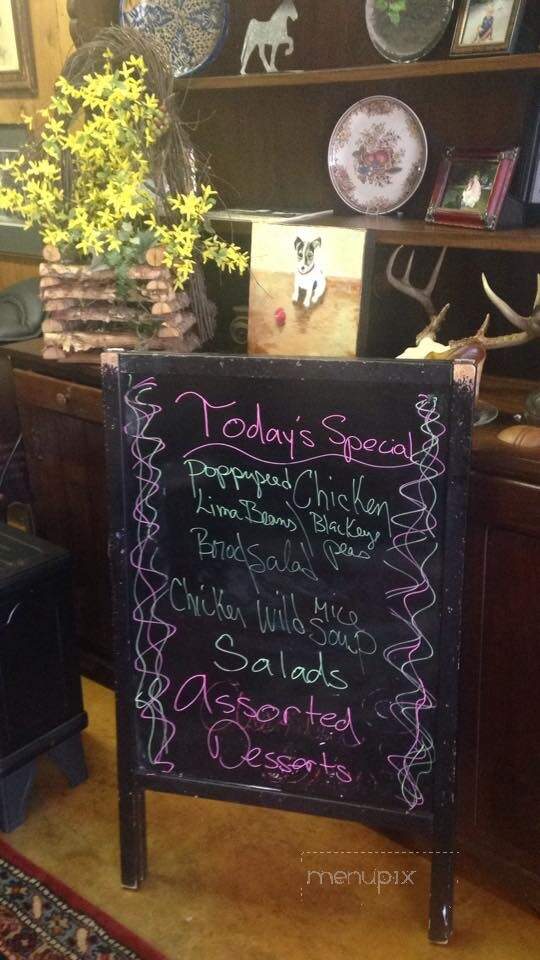 Today's Special
Poppyseed Chicken
Lima Beans / Blackeye peas
Brod Salad
Chicken Wild Mice Soup
Salads
Assorted
Desserts
menupix